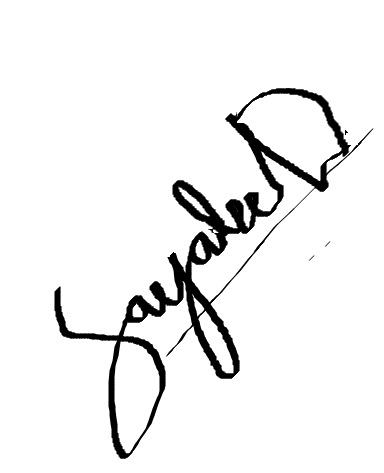 Sayalee D